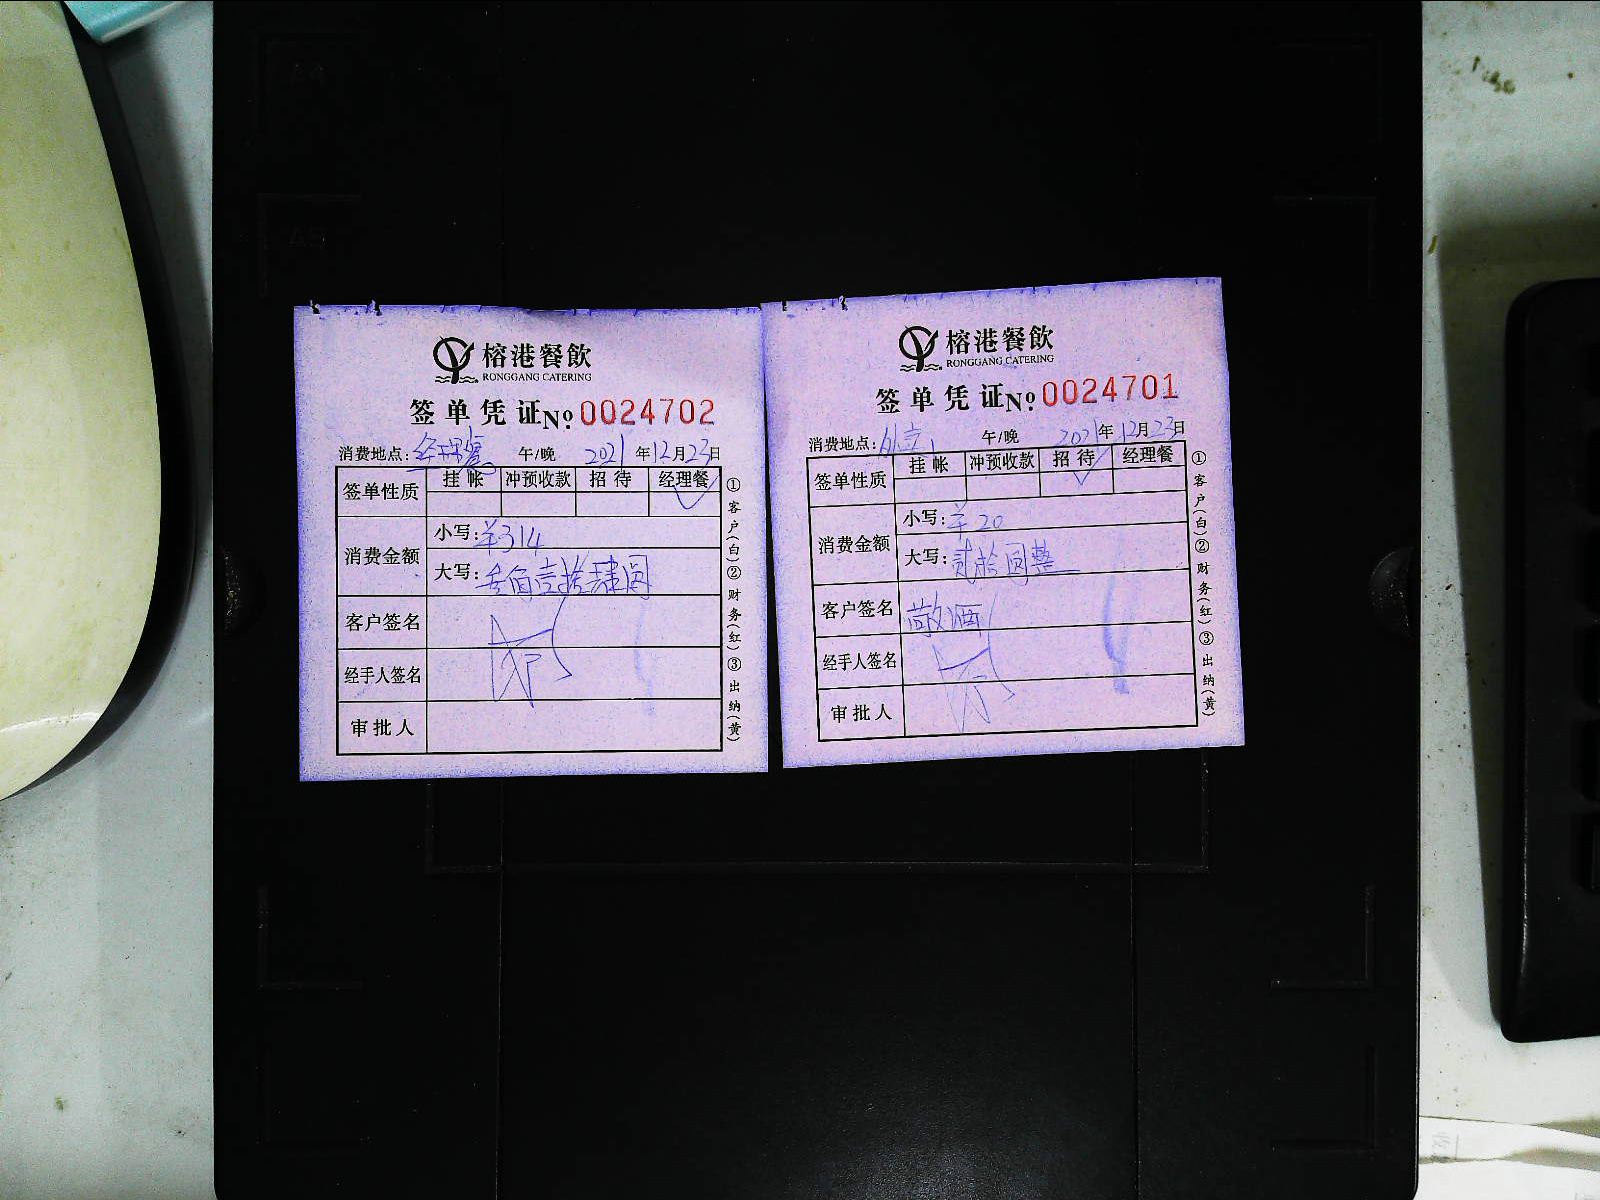 榕港餐飲
RONGGANG CATERING
签单凭证 № 0024702
消费地点：经理餐 午/晚 2021年12月23日
签单性质 挂帐 冲预收款 招待 经理餐
消费金额 小写：¥314
大写：叁佰壹拾肆圆
客户签名
经手人签名
审批人
①客户(白)②财务(红)③出纳(黄)
榕港餐飲
RONGGANG CATERING
签单凭证 № 0024701
消费地点： 午/晚 2021年12月23日
签单性质 挂帐 冲预收款 招待 经理餐
消费金额 小写：¥20
大写：贰拾圆整
客户签名 敬酒
经手人签名
审批人
①客户(白)②财务(红)③出纳(黄)